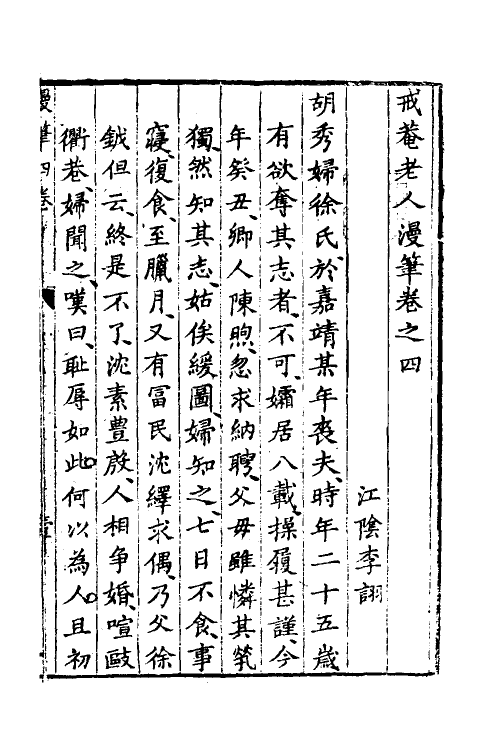 戒菴老人漫筆卷之四
江陰李詡
胡秀婦徐氏於嘉靖某年喪夫時年二十五歲
有欲奪其志者不可孀居八載操履甚謹今
年癸丑鄉人陳煦忽求納聘父毋雖憐其煢
獨然知其志姑俟緩圖婦知之七日不食事
寢復食至臘月又有富民沈繹求偶乃父徐
鉞但云終是不了沈素豊殷人相爭婚喧敺
衢巷婦聞之嘆曰耻辱如此何以為人且初
漫筆四卷